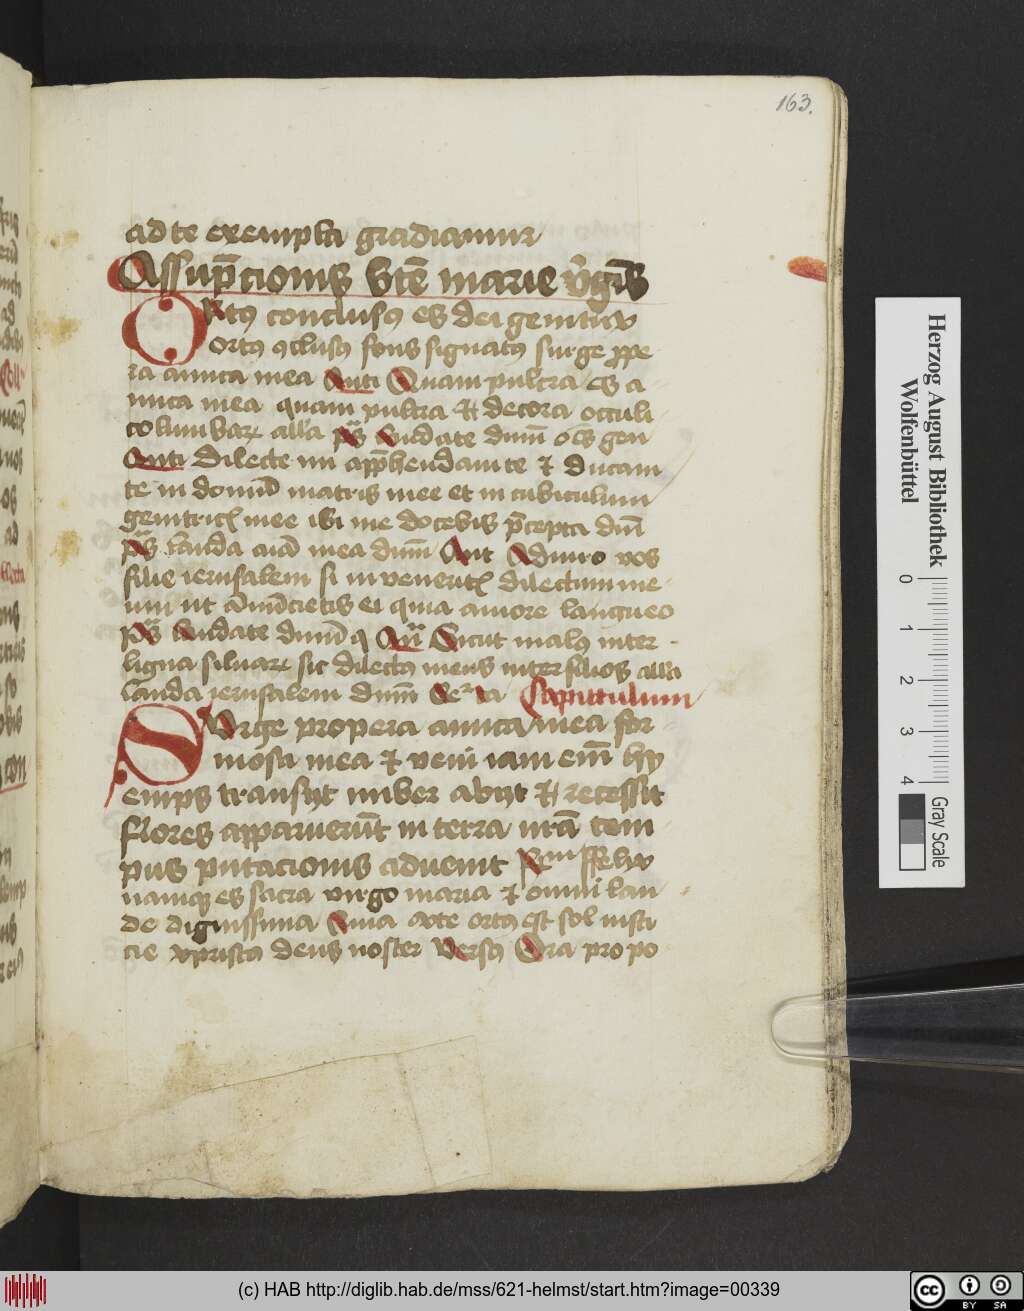 163.
ad te exempla gradiamur
Assūpcionis btē marie v̄gīs
Ortꝰ conclusꝰ es dei genitrix
ortꝰ ꝯclusꝰ fons signatꝰ surge ꝓpe
ra amica mea Anti Quam pulcra es a
mica mea quam pulcra et decora occuli
columbaꝝ alla p̄s Laudate dnm̄ oēs gen
Anti Dilecte mi app̄hendam te et ducam
te in domū matris mee et in cubiculum
genitricis mee ibi me docebis p̄cepta dnī
p̄s Lauda aīa mea dnm̄ Ant Adiuro vos
filie ierusalem si inveneritis dilectum me
um ut anūncietis ei quia amore langueo
p̄s laudate dnm̄ q Añ Sicut malꝰ inter
ligna silvaꝝ sic dilectꝰ meus inter filios alla
Lauda ierusalem dnm̄ Capitulum
Surge propera amica mea for
mosa mea et veni iam enī hy
emps transijt imber abijt et recessit
flores apparuerūt in terra nrā tem
pus putacionis advenit Rm̄ ffelix
namqꝫ es sacra virgo maria et omni lau
de dignissima Quia ex te ortꝰ est sol iusti
cie xpristꝰ deus noster Versꝰ Ora pro po
Herzog August Bibliothek
Wolfenbüttel
0 1 2 3 4
Gray Scale
(c) HAB http://diglib.hab.de/mss/621-helmst/start.htm?image=00339
cc BY SA